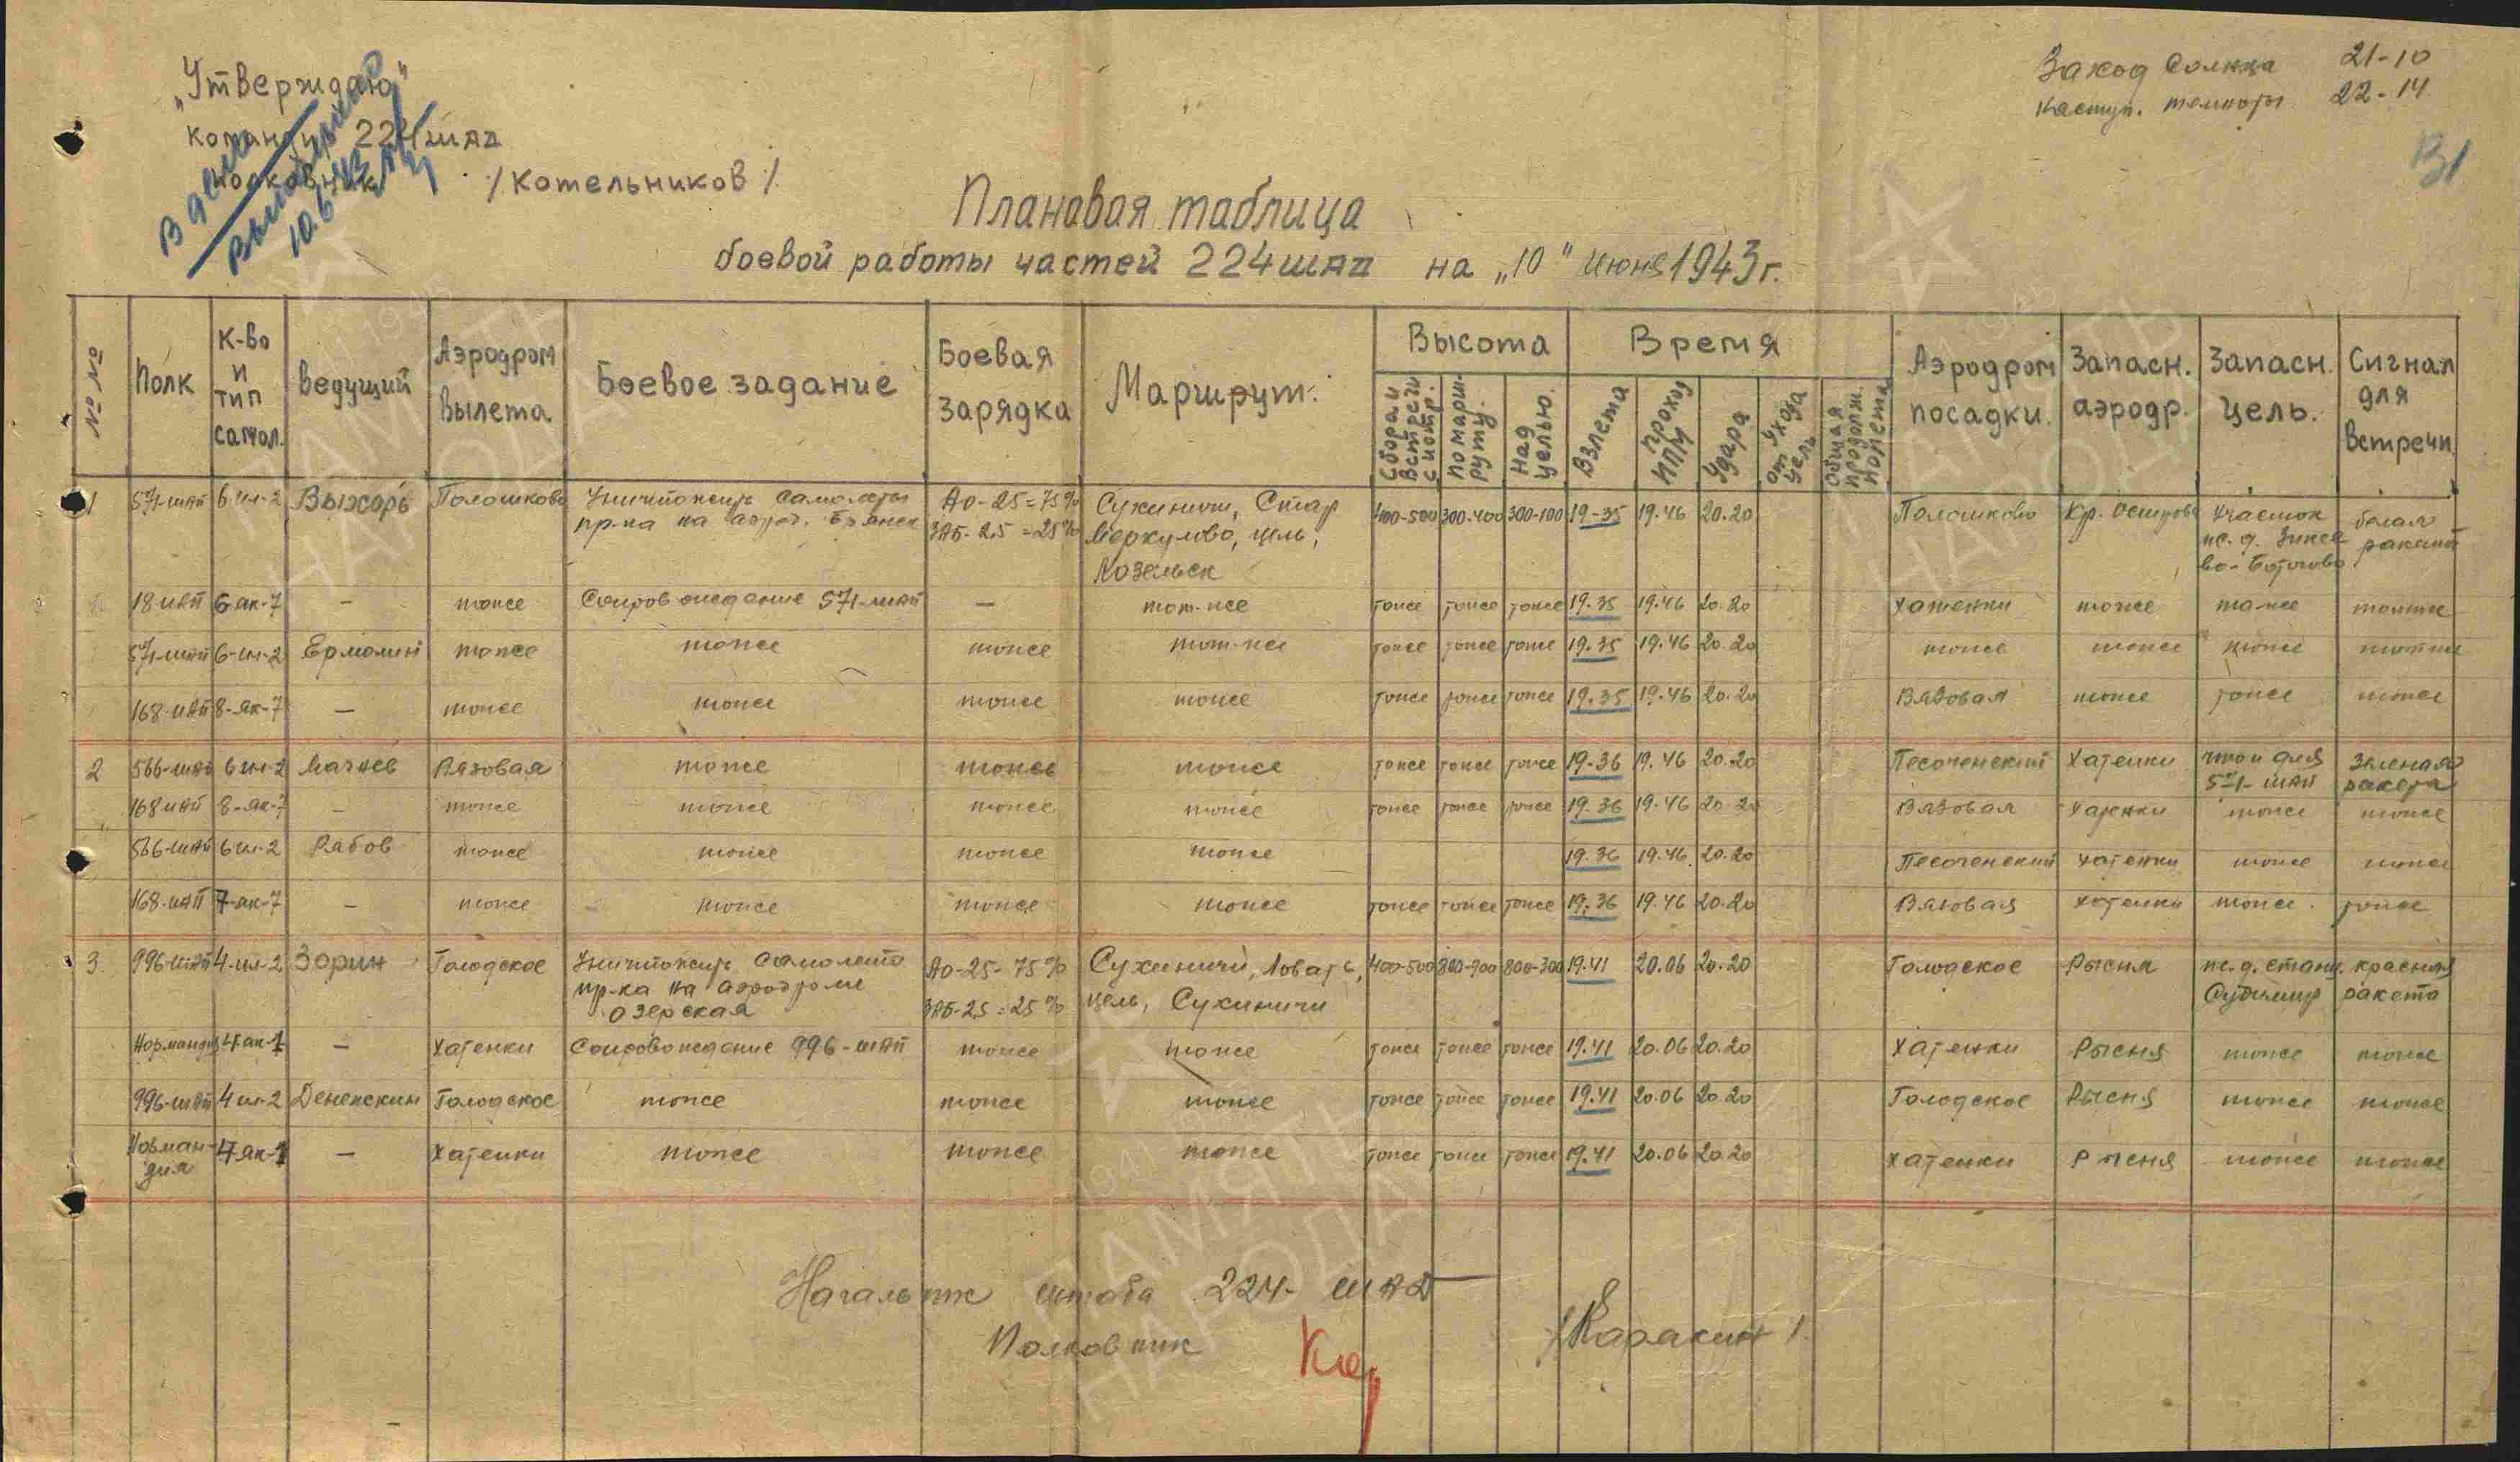 "Утверждаю"
Командир 224 шад
полковник /Котельников/
В дело
10.6.43
Заход солнца 21-10
наступ. темноты 22-14
Плановая таблица
боевой работы частей 224 шад на "10" июня 1943 г.
№ №
Полк
К-во и тип самол.
Ведущий
Аэродром вылета
Боевое задание
Боевая зарядка
Маршрут.
Высота
Сбора и встречи с истр.
По маршруту.
Над целью.
Время
Взлета
Проход ИПМ
Удара
От ухода цель
Общая продолж. полета
Аэродром посадки.
Запасн. аэродр.
Запасн. цель.
Сигнал для встречи
1 571-шап 6 ил-2 Выхорь Полошково Уничтожить самолеты АО-25=75% Сухиничи, Стар 400-500 300-400 300-100 19-35 19.46 20.20 Полошково Кр. участок белая
пр-ка на аэрод. Брянск ЗАБ-2,5=25% Меркулово, цель, ж.д. ракета
Козельск
18 иап 6 як-7 – тоже Сопровождение 571-шап – тот-же тоже тоже тоже 19.35 19.46 20.20 Хатенки тоже та-же тот же
571-шап 6-ил-2 Ермолин тоже тоже тоже тот-же тоже тоже тоже 19.35 19.46 20.20 тоже тоже тоже тот же
168-иап 8-як-7 – тоже тоже тоже тоже тоже тоже тоже 19.35 19.46 20.20 Вязовая тоже тоже тоже
2 566-шап 6 ил-2 Мачнев Вязовая тоже тоже тоже тоже тоже тоже 19-36 19.46 20.20 Песоченский Хатенки что и для зеленая
571-шап ракета
168 иап 8-як-7 – тоже тоже тоже тоже тоже тоже тоже 19.36 19.46 20.20 Вязовая Хатенки тоже тоже
566-шап 6 ил-2 Рабов тоже тоже тоже тоже 19.36 19.46 20.20 Песоченский Хатенки тоже тоже
168-иап 7-як-7 – тоже тоже тоже тоже тоже тоже тоже 19.36 19.46 20.20 Вязовая Хатенки тоже тоже
3 996-шап 4-ил-2 Зорин Голодское Уничтожить самолеты АО-25=75% Сухиничи, Ловать, 400-500 800-700 800-300 19.41 20.06 20.20 Голодское Рысня ж.д. станц. красная
пр-ка на аэродроме ЗАБ-2,5=25% цель, Сухиничи Судимир ракета
Озерская
Нормандия 4 як-1 – Хатенки Сопровождение 996-шап тоже тоже тоже тоже тоже 19.41 20.06 20.20 Хатенки Рысня тоже тоже
996-шап 4 ил-2 Голодское тоже тоже тоже тоже тоже тоже 19.41 20.06 20.20 Голодское Рысня тоже тоже
Норман- 4 як-1 – Хатенки тоже тоже тоже тоже тоже тоже 19.41 20.06 20.20 Хатенки Рысня тоже тоже
дия
Начальник штаба 224-шад
Полковник /Карякин/